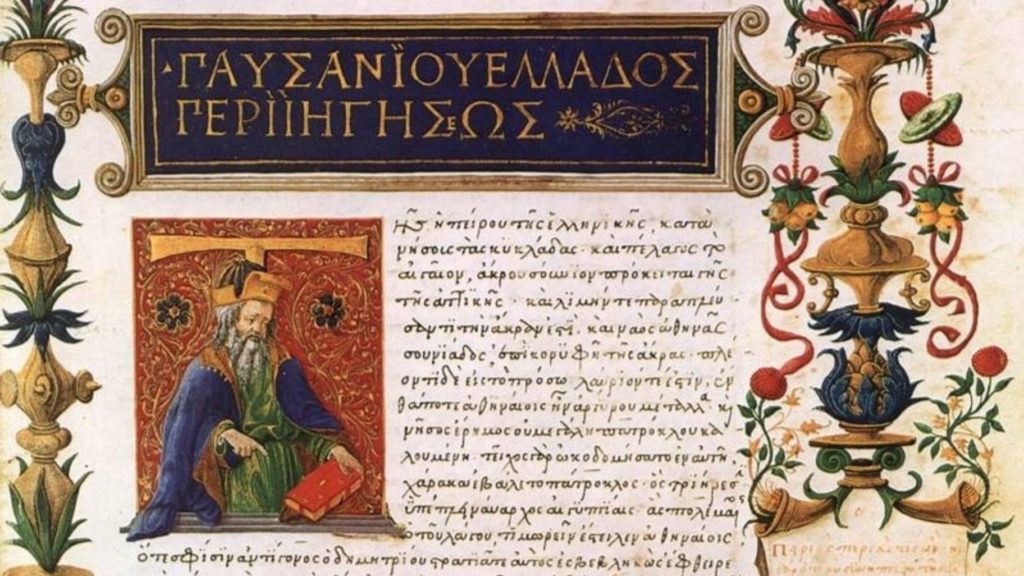 ΠΑΥΣΑΝΪΟΥ ΕΛΛΑΔΟΣ
ΠΕΡΙΪΗΓΗΣΕΩΣ
Τ
ῆς ἠπείρου τῆς ἑλληνικῆς, κατὰ
νήσους τὰς κυκλάδας· καὶ πέλαγος τὸ
αἰγαῖον, ἄκρα σούνιον πρόκειται γῆς
τῆς ἀττικῆς· καὶ λιμήν τε παραπλεύ
τὴν ἄκραν ἐστί, καὶ ναὸς ἀθηνᾶς
σουνιάδος, ἐπὶ κορυφῇ τῆς ἄκρας. πλέ
οντι δὲ εἰς τὸ πρόσω λαύριόν τέ ἐστιν, ἔν
θα ποτὲ ἀθηναίοις ἦν ἀργύρου μέταλλα, καὶ
νῆσος ἔρημος οὐ μεγάλη πατρόκλου κα
λουμένη. τεῖχος ᾠκοδομήσατο ἐν αὐτῇ
χάρακα ἐβάλετο πάτροκλος, ὃς τριήρεσ
ὑπέπλει ναύαρχος αἰγυπτίαις· ἃς πτολεμαῖος
ὁ τοῦ λάγου, τιμωρεῖν ἔστειλεν ἀθηναίοις
ὅτε σφίσιν ἀντίγονος ὁ δημητρίου στρατιᾷ τε αὐτὸς ἐσβεβληκὼς ἔφθειρε